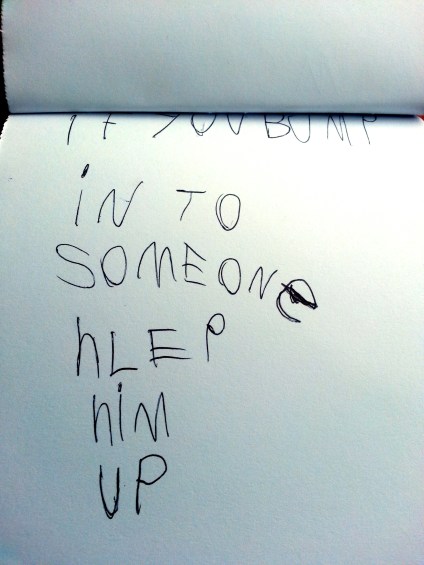 if YOU BUMP
iN TO
SOMEONe
hLEP
hiM
UP